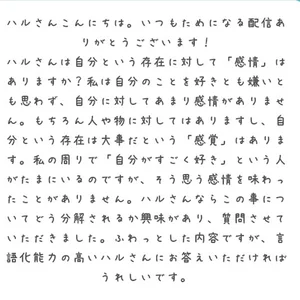 ハルさんこんにちは。いつもためになる配信あ
りがとうございます！
ハルさんは自分という存在に対して「感情」は
ありますか？私は自分のことを好きとも嫌いと
も思わず、自分に対してあまり感情がありませ
ん。もちろん人や物に対してはありますし、自
分という存在は大事だという「感覚」はありま
す。私の周りで「自分がすごく好き」という人
がたまにいるのですが、そう思う感情を味わっ
たことがありません。ハルさんならこの事につ
いてどう分解されるか興味があり、質問させて
いただきました。ふわっとした内容ですが、言
語化能力の高いハルさんにお答えいただければ
うれしいです。